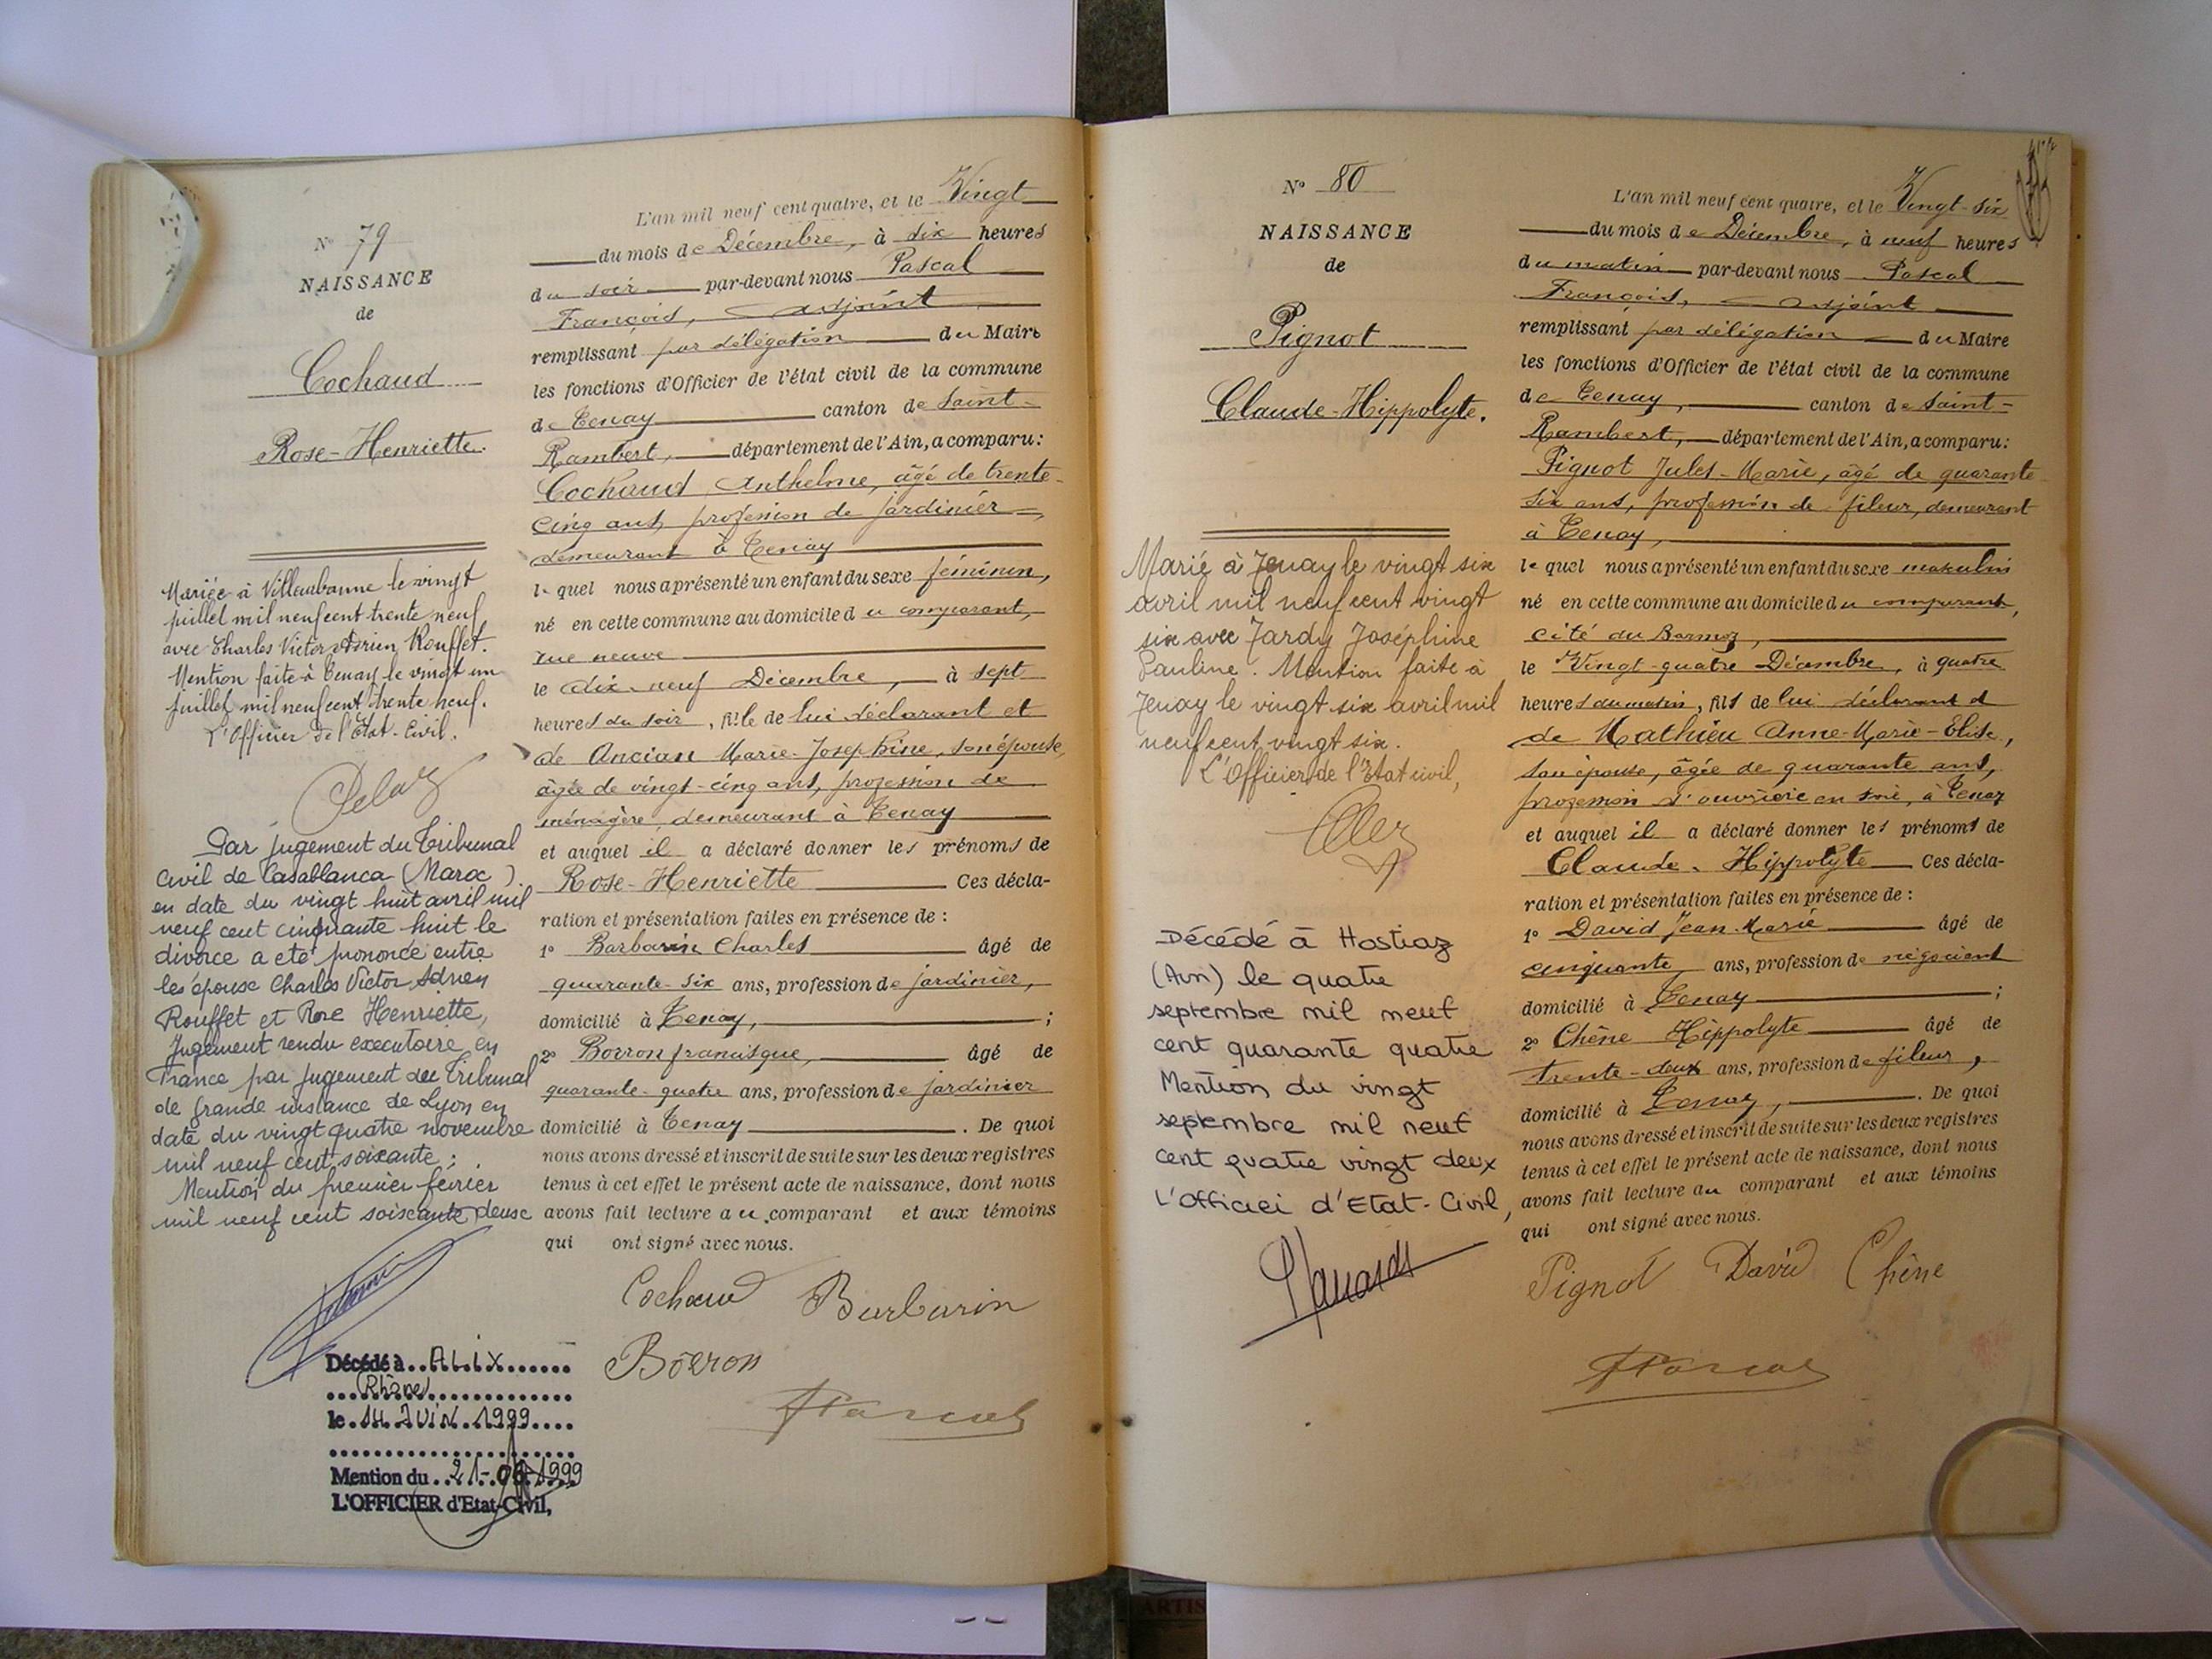 N° 79
NAISSANCE
de
Cochaud
Rose-Henriette.
Mariée à Villeurbanne le vingt
juillet mil neuf cent trente neuf
avec Charles Victor Adrien Rouffet.
Mention faite à Tenay le vingt un
juillet mil neuf cent trente neuf.
L'Officier de l'Etat-Civil.
Par jugement du Tribunal
Civil de Casablanca (Maroc)
en date du vingt huit avril mil
neuf cent cinquante huit le
divorce a été prononcé entre
les épouse Charles Victor Adrien
Rouffet et Rose Henriette,
Jugement rendu executoire en
France par jugement du Tribunal
de grande instance de Lyon en
date du vingt quatre novembre
mil neuf cent soixante ;
Mention du premier février
mil neuf cent soixante deux
Décédé à ..ALIX......
(Rhône)
le .14 JUIN .1999....
Mention du ..21-.06-1999
L'OFFICIER d'Etat-Civil,
L'an mil neuf cent quatre, et le Vingt
du mois de Décembre, à six heures
du soir par-devant nous Pascal
François, adjoint
remplissant par délégation du Maire
les fonctions d'Officier de l'état civil de la commune
de Tenay canton de Saint-
Rambert, département de l'Ain, a comparu:
Cochaud Anthelme, âgé de trente-
cinq ans, profession de jardinier
demeurant à Tenay
lequel nous a présenté un enfant du sexe féminin,
né en cette commune au domicile du comparant,
rue neuve
le dix-neuf Décembre, à sept
heures du soir, fille de lui déclarant et
de Ancian Marie-Josephine, son épouse,
âgée de vingt-cinq ans, profession de
ménagère, demeurant à Tenay
et auquel il a déclaré donner les prénoms de
Rose-Henriette Ces décla-
ration et présentation faites en présence de :
1° Barbarin Charles âgé de
quarante-six ans, profession de jardinier,
domicilié à Tenay, ;
2° Borron francisque, âgé de
quarante-quatre ans, profession de jardinier
domicilié à Tenay . De quoi
nous avons dressé et inscrit de suite sur les deux registres
tenus à cet effet le présent acte de naissance, dont nous
avons fait lecture au comparant et aux témoins
qui ont signé avec nous.
Cochaud Barbarin
Borron
FPascal
N° 80
NAISSANCE
de
Pignot
Claude-Hippolyte.
Marié à Tenay le vingt six
avril mil neuf cent vingt
six avec Jardy Joséphine
Pauline. Mention faite à
Tenay le vingt six avril mil
neuf cent vingt six.
L'Officier de l'Etat civil,
Décédé à Hostiaz
(Ain) le quatre
septembre mil neuf
cent quarante quatre
Mention du vingt
septembre mil neuf
cent quatre vingt deux
L'Officier d'Etat-Civil,
L'an mil neuf cent quatre, et le Vingt-six
du mois de Décembre, à neuf heures
du matin par-devant nous Pascal
François, adjoint
remplissant par délégation du Maire
les fonctions d'Officier de l'état civil de la commune
de Tenay, canton de Saint-
Rambert, département de l'Ain, a comparu:
Pignot Jules-Marie, âgé de quarante
six ans, profession de fileur, demeurant
à Tenay,
lequel nous a présenté un enfant du sexe masculin
né en cette commune au domicile du comparant,
cité du Barmoz,
le Vingt-quatre Décembre, à quatre
heures du matin, fils de lui déclarant et
de Mathieu Anne-Marie-Elise,
son épouse, âgée de quarante ans,
profession d'ouvrière en soie, à Tenay
et auquel il a déclaré donner les prénoms de
Claude-Hippolyte Ces décla-
ration et présentation faites en présence de :
1° David Jean-Marie âgé de
cinquante ans, profession de négociant
domicilié à Tenay ;
2° Chêne Hippolyte âgé de
trente-deux ans, profession de fileur,
domicilié à Tenay, . De quoi
nous avons dressé et inscrit de suite sur les deux registres
tenus à cet effet le présent acte de naissance, dont nous
avons fait lecture au comparant et aux témoins
qui ont signé avec nous.
Pignot David Chêne
FPascal
ARTIS